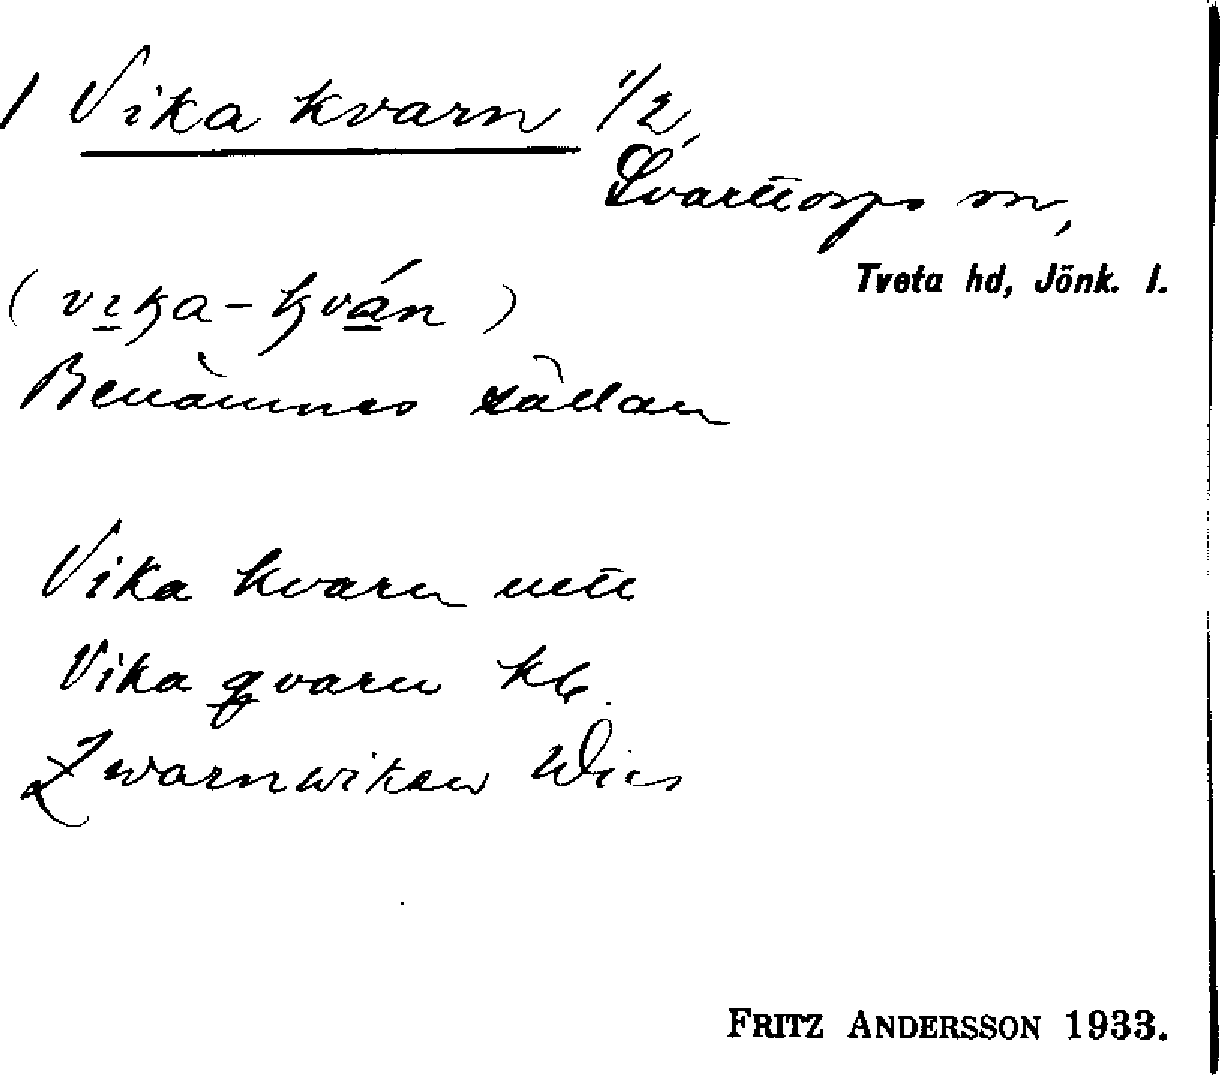 1 Vika kvarn 1/2,
Svarttorps sn,
Tveta hd, Jönk. l.
(vika-kván)
Benämnes sällan
Vika kvarn
Vika qvarn kb.
Qwarnwiken Wies
FRITZ ANDERSSON 1933.